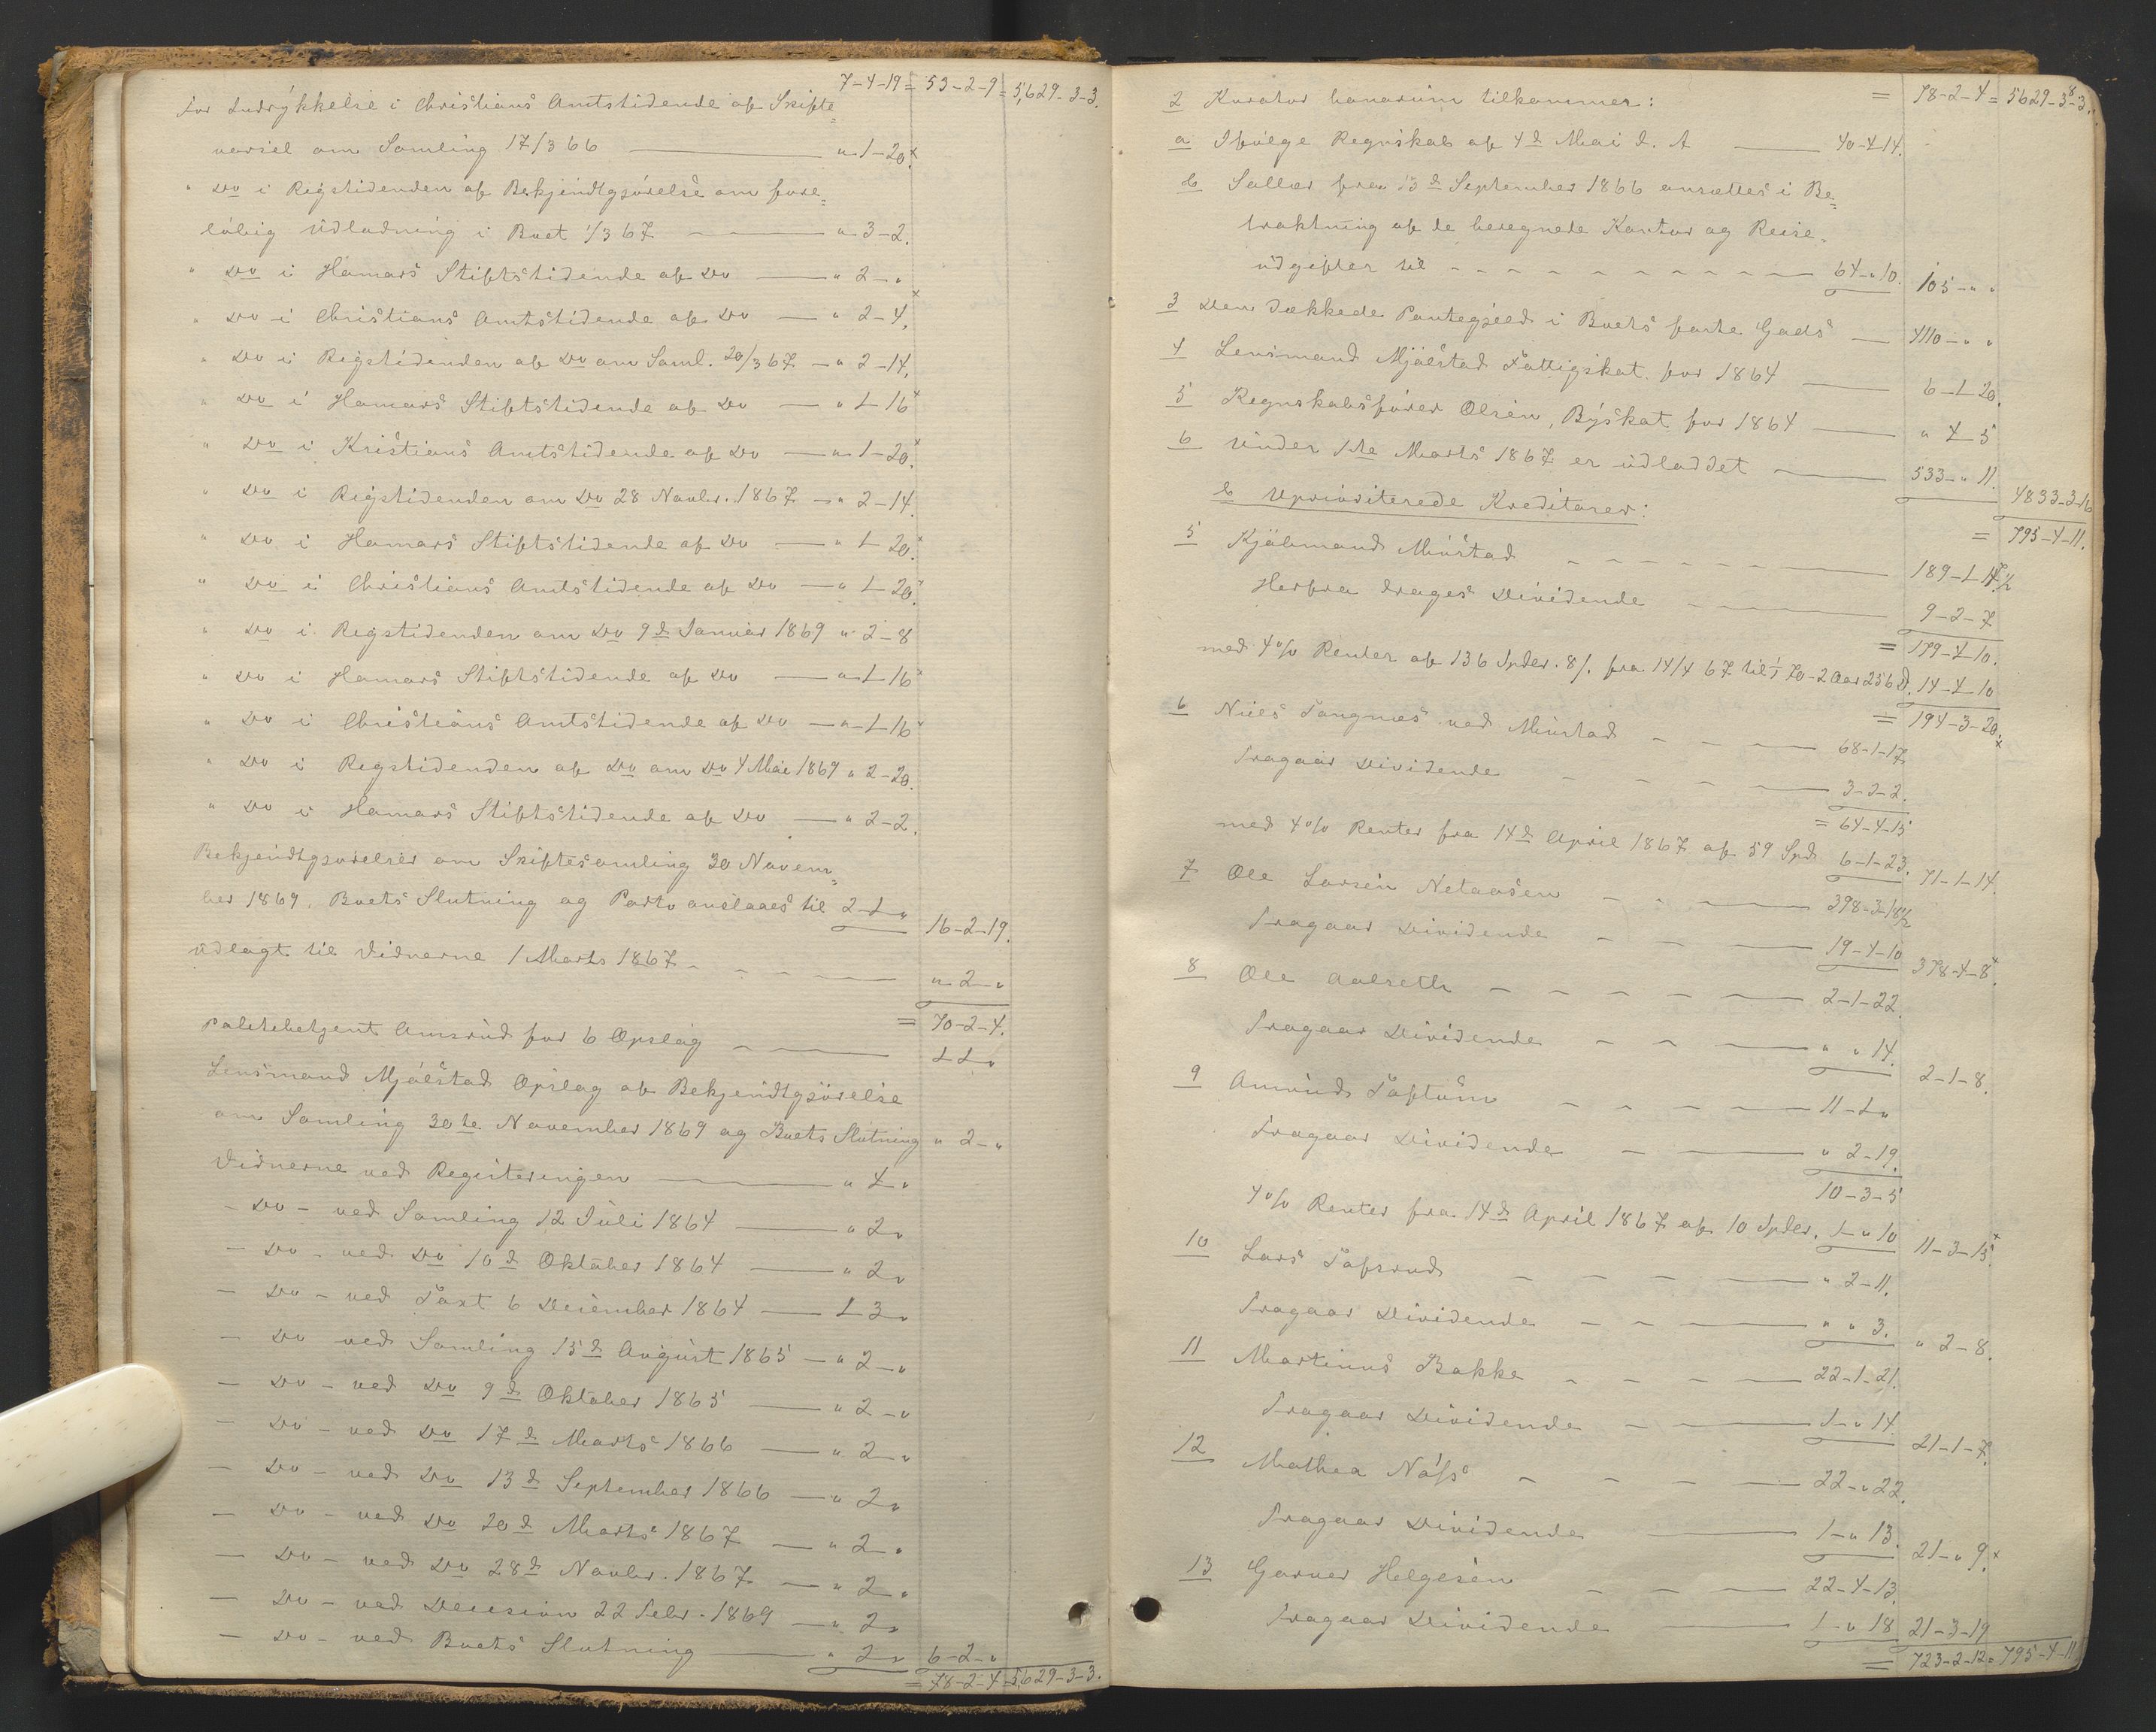 7-4-19 = 53-2-9 = 5,629-3-3.
For Indrykkelse i Christians Amtstidende af Skifte=
varsel om Samling 17/3 66 — " 1-20.
" Do i Rigstidenden af Bekjendtgjørelse om fore=
løbig Udladning i Boet 1/3 67 — " 3-2.
" Do i Hamars Stiftstidende af Do — " 2-"
" Do i Christians Amtstidende af Do — " 2-4.
" Do i Rigstidenden af Do om Saml. 20/3 67 — " 2-14.
" Do i Hamars Stiftstidende af Do — " 1-16
" Do i Kristians Amtstidende af Do — " 1-20.
" Do i Rigstidenden om Do 28 Novbr. 1867 — " 2-14.
" Do i Hamars Stiftstidende af Do — " 1-20.
" Do i Christians Amtstidende af Do — " 1-20.
" Do i Rigstidenden om Do 9d Januar 1869 " 2-8
" Do i Hamars Stiftstidende af Do — " 1-16
" Do i Christians Amtstidende af Do — " 1-16
" Do i Rigstidenden af Do om Do 4 Mai 1869 " 2-20.
" Do i Hamars Stiftstidende af Do — " 2-2.
Bekjendtgjørelser om Skiftesamling 30 Novem=
ber 1869, Boets Slutning og Porto anslaaes til 2-1-" 16-2-19.
Udlagt til Vidnerne 1 Marts 1867 — " 2-"
= 70-2-4.
Politibetjent Amsrud for 6 Opslag — 1-1-"
Lensmand Mjølstad Opslag af Bekjendtgjørelse
om Samling 30te November 1869 og Boets Slutning " 2-"
Vidnerne ved Registeringen — " 4-"
- Do - ved Samling 12 Juli 1864 — " 2-"
- Do - ved Do 10d Oktober 1864 — " 2-"
- Do - ved Taxt 6 December 1864 — 1-3-"
- Do ved Samling 15d August 1865 — " 2-"
- Do - ved Do 9d Oktober 1865 — " 2-"
- Do - ved Do 17d Marts 1866 — " 2-"
- Do - ved Do 13d September 1866 — " 2-"
- Do - ved Do 20d Marts 1867 — " 2-"
- Do - ved Do 28d Novbr. 1867 — " 2-"
- Do - ved Decision 22 Febr. 1869 — " 2-"
- Do - ved Boets Slutning — " 2-" 6-2-"
= 78-2-4 = 5,629-3-3.
= 78-2-4 = 5629-3-3.
2 Kurator honorum tilkommer:
a Ifølge Regnskab af 4d Mai d. A — 40-4-14.
b Sallær fra 13d September 1866 ansættes i Be=
traktning af de beregnede Kontor og Reise-
udgifter til — 64-"-10. 105-"-"
3 Den dækkede Pantegjeld i Boets faste Gods — 4110-"-"
4 Lensmand Mjølstad Fattigskat for 1864 — 6-1-20.
5 Regnskabsfører Olsen, Byskat for 1864 — " 4-5
6 Under 1te Marts 1867 er udloddet — 533-"-11. 4833-3-16
b Uprioriterede Kreditorer: = 795-4-11.
5 Kjøbmand Mustad — 189-1-17 1/2
Herfra drages Dividende — 9-2-7.
= 179-4-10.
med 4% Renter af 136 Spdr. 8/. fra 14/4 67 til 1/1 70 - 2 Aar 256 D. 14-4-10
= 194-3-20.
6 Niels Tangnæs ved Mustad — 68-1-17
Fragaar Dividende — 3-2-2.
= 64-4-15
med 4% Renter fra 14d April 1867 af 59 Spd. 6-1-23. 71-1-14.
7 Ole Larsen Netaasen — 398-3-18 1/2
Fragaar Dividende — 19-4-10 378-4-8.
8 Ole Aalseth — 2-1-22.
Fragaar Dividende — " " 14. 2-1-8.
9 Amund Toftum — 11-1-"
Fragaar Dividende — " 2-19.
10-3-5
4% Renter fra 14d April 1867 af 10 Spdr. 1-"-10 11-3-15.
10 Lars Tofsrud — " 2-11.
Fragaar Dividende — " " 3. " 2-8.
11 Martinus Bakke — 22-1-21.
Fragaar Dividende — 1-"-14. 21-1-7.
12 Mathea Næss — 22-"-22.
Fragaar Dividende — 1-"-13. 21-"-9.
13 Garver Helgesen — 22-4-13.
Fragaar Dividende — 1-"-18 21-3-19
= 723-2-12 = 795-4-11.